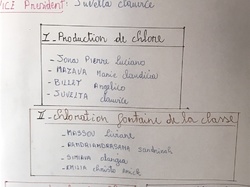 VICE Président: JUVELTA clairice
I_ Production de chlore
- Jona Pierre Luciano
- MAZAVA Marie Claudia
- BILLET Angelico
- JUVELTA clairice
II_ chloration fontaine de la classe
- MASSON
- RANDRIAMDRASANA
- SIMIAVA
- EMILIA christe